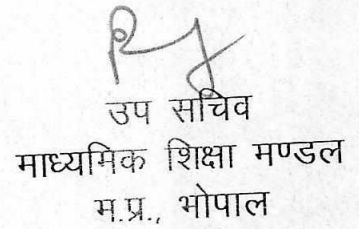 उप सचिव
माध्यमिक शिक्षा मण्डल
म.प्र., भोपाल